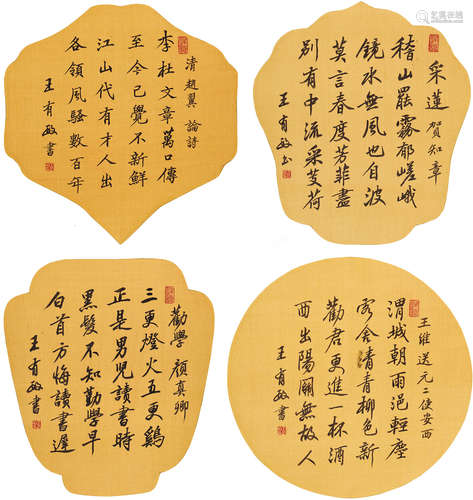 清 趙翼 論詩
李杜文章萬口傳
至今已覺不新鮮
江山代有才人出
各領風騷數百年
王有敏書
采蓮 賀知章
稽山罷霧郁嵯峨
鏡水無風也自波
莫言春度芳菲盡
別有中流采芰荷
王有敏书
勸學 顏真卿
三更燈火五更鷄
正是男兒讀書時
黑髮不知勤學早
白首方悔讀書遲
王有敏書
王維送元二使安西
渭城朝雨浥輕塵
客舍清青柳色新
勸君更進一杯酒
西出陽關無故人
王有敏書